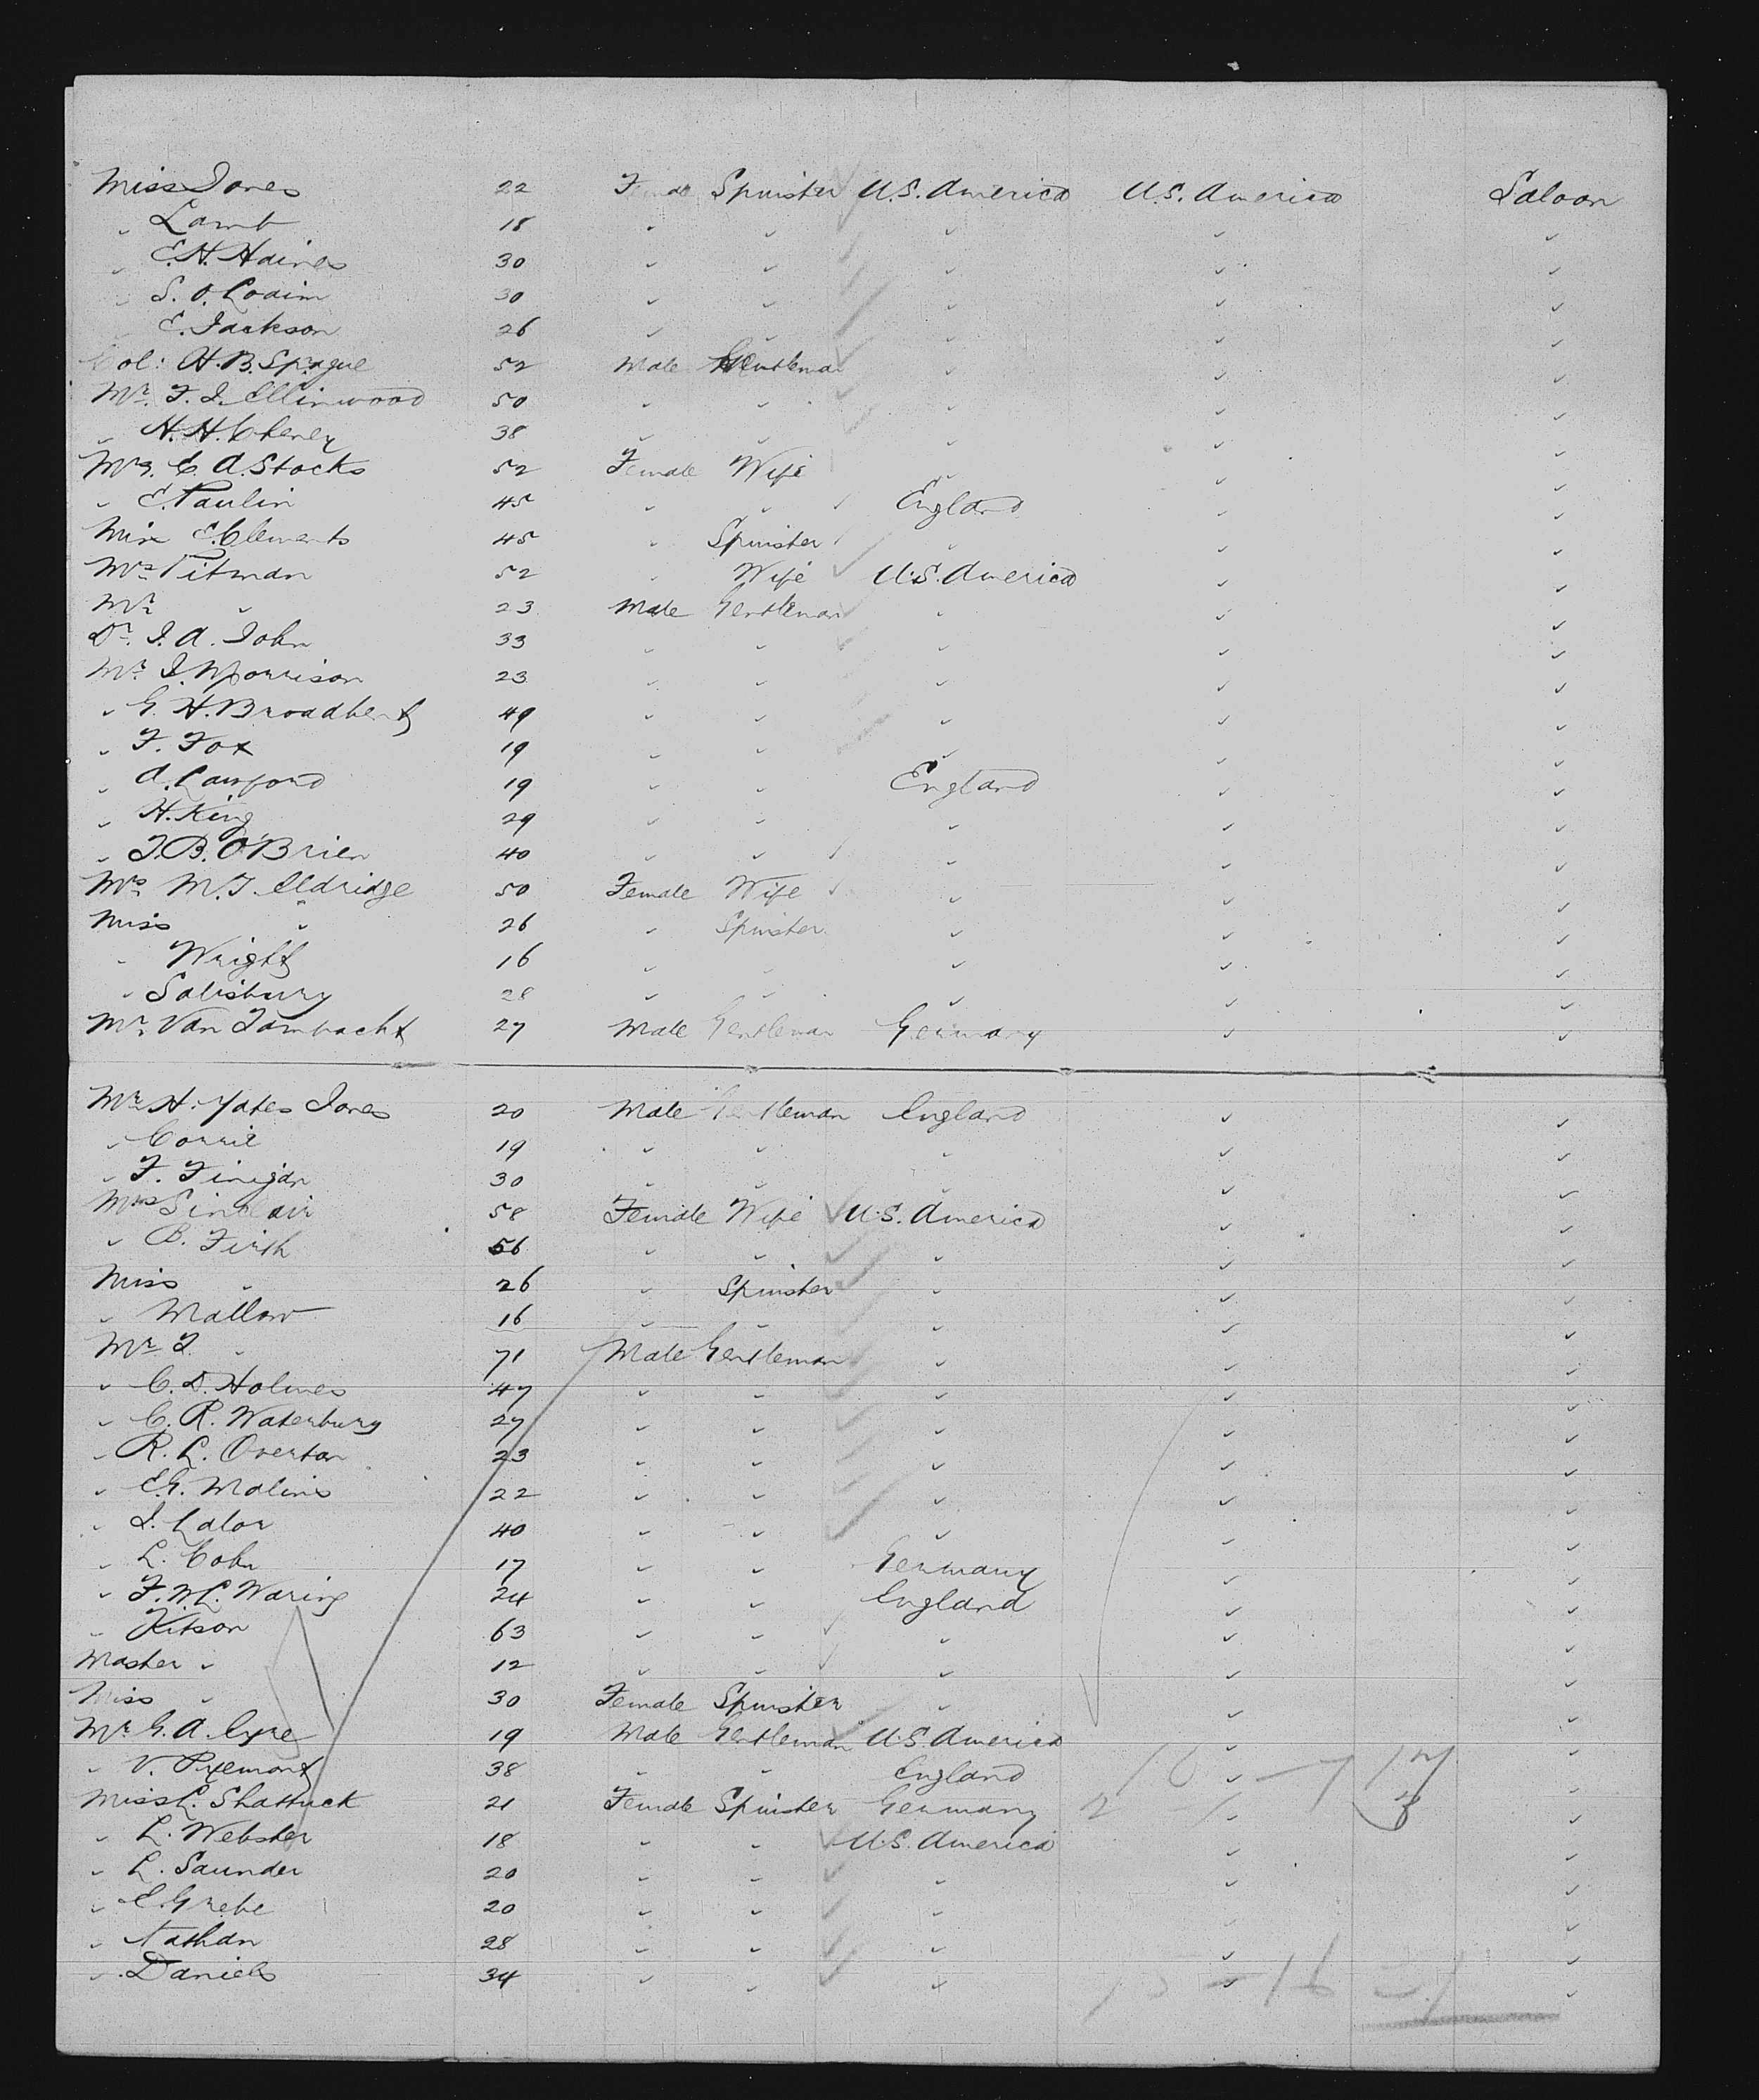 Miss Jones 22 Female Spinster U.S. America U.S. America Saloon
" Lamb 18 " " " " "
" E.H. Haines 30 " " " " "
" S.O. 30 " " " " "
" E. Jackson 26 " " " " "
Col: H.B. Sprague 52 Male Gentleman " " "
Mr. F.I. Ellinwood 50 " " " " "
" H.H. Cheney 38 " " " " "
Mrs. C.A. Stocks 52 Female Wife " " "
" E. Paulin 45 " " England " "
Miss E. Clements 45 " Spinster " " "
Mrs Pitman 52 " Wife U.S. America " "
Mr " 23 Male Gentleman " " "
Dr. J.A. John 33 " " " " "
Mr. J. Morrison 23 " " " " "
" G.H. Broadbent 49 " " " " "
" F. Fox 19 " " " " "
" A. Lawford 19 " " England " "
" H. King 29 " " " " "
" J.B. O'Brien 40 " " " " "
Mrs M.J. Eldridge 50 Female Wife " " "
Miss " 26 " Spinster " " "
" Wright 16 " " " " "
" Salisbury 28 " " " " "
Mr. Van 27 Male Gentleman Germany " "
Mr. H. Yates Jones 20 Male Gentleman England " "
" Corrie 19 " " " " "
" F. Finigan 30 " " " " "
Mrs Sinclair 58 Female Wife U.S. America " "
" B. Firth 56 " " " " "
Miss " 26 " Spinster " " "
" Mallow 16 " " " " "
Mr. J. " 71 Male Gentleman " " "
" C.D. Holmes 47 " " " " "
" C.R. Waterbury 27 " " " " "
" R.L. Overton 23 " " " " "
" E.G. Malins 22 " " " " "
" J. Lalor 40 " " " " "
" L. Cohn 17 " " Germany " "
" F.W.L. Waring 24 " " England " "
" Kitson 63 " " " " "
Master " 12 " " " " "
Miss " 30 Female Spinster " " "
Mr. G.A. Eyre 19 Male Gentleman U.S. America " "
" V. 38 " " England " "
Miss L. Shattuck 21 Female Spinster Germany " "
" L. Webster 18 " " U.S. America " "
" L. Saunder 20 " " " " "
" E. Grebe 20 " " " " "
" Nathan 28 " " " " "
" Daniels 34 " " " " "